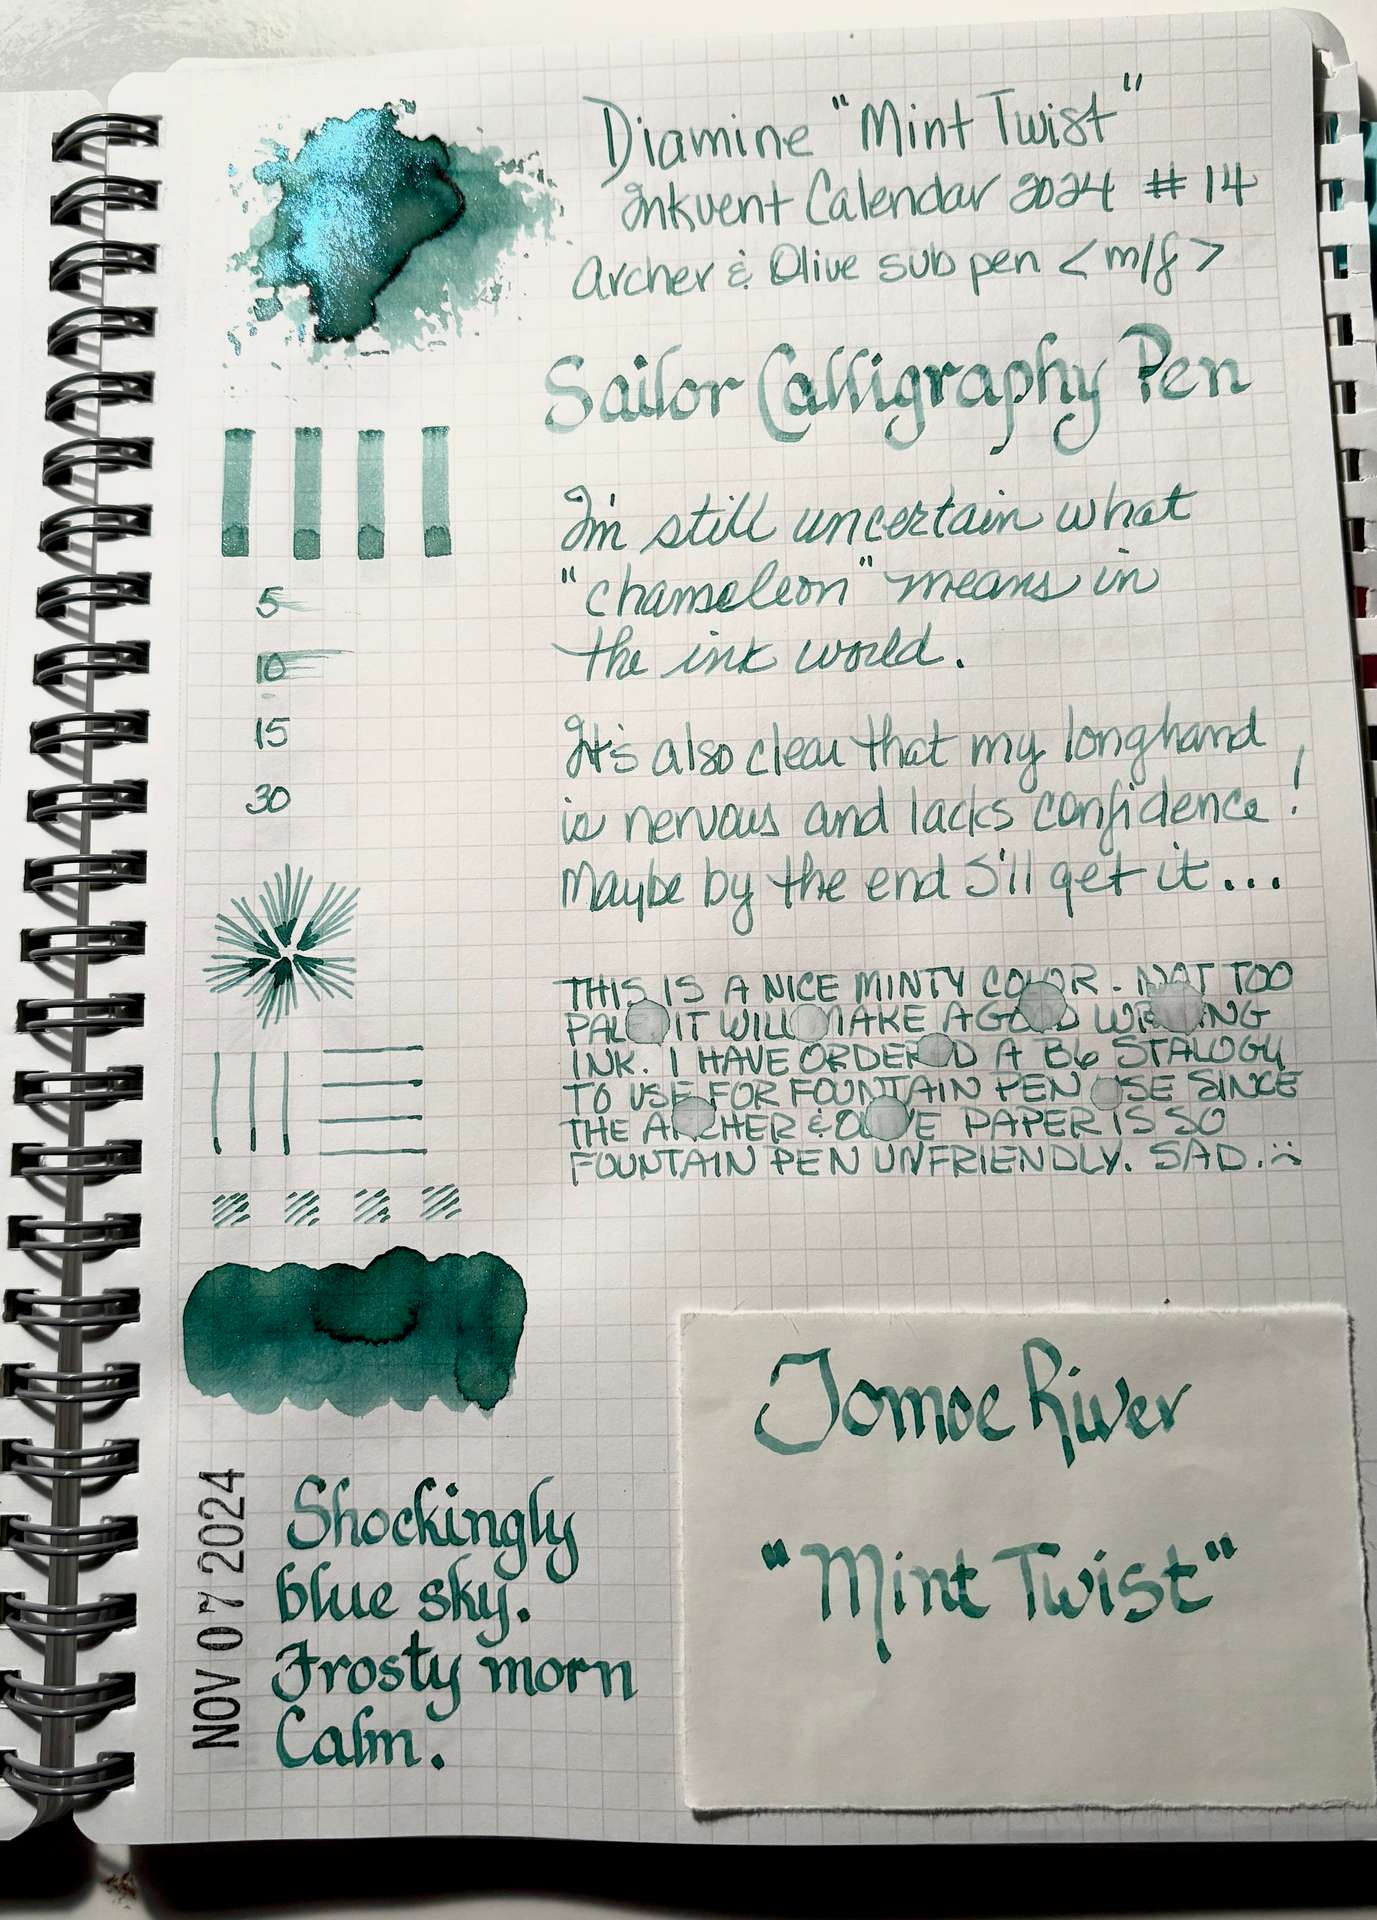 Diamine "Mint Twist"
Inkvent Calendar 2024 #14
Archer & Olive sub pen <m/f>
Sailor Calligraphy Pen
I'm still uncertain what
"chameleon" means in
the ink world.
It's also clear that my longhand
is nervous and lacks confidence!
Maybe by the end I'll get it...
THIS IS A NICE MINTY COLOR. NOT TOO
PALE IT WILL MAKE A GOOD WRITING
INK. I HAVE ORDERED A B6 STALOGY
TO USE FOR FOUNTAIN PEN USE SINCE
THE ARCHER & OLIVE PAPER IS SO
FOUNTAIN PEN UNFRIENDLY. SAD. :(
5
10
15
30
NOV 07 2024
Shockingly
blue sky.
Frosty morn
Calm.
Tomoe River
"Mint Twist"